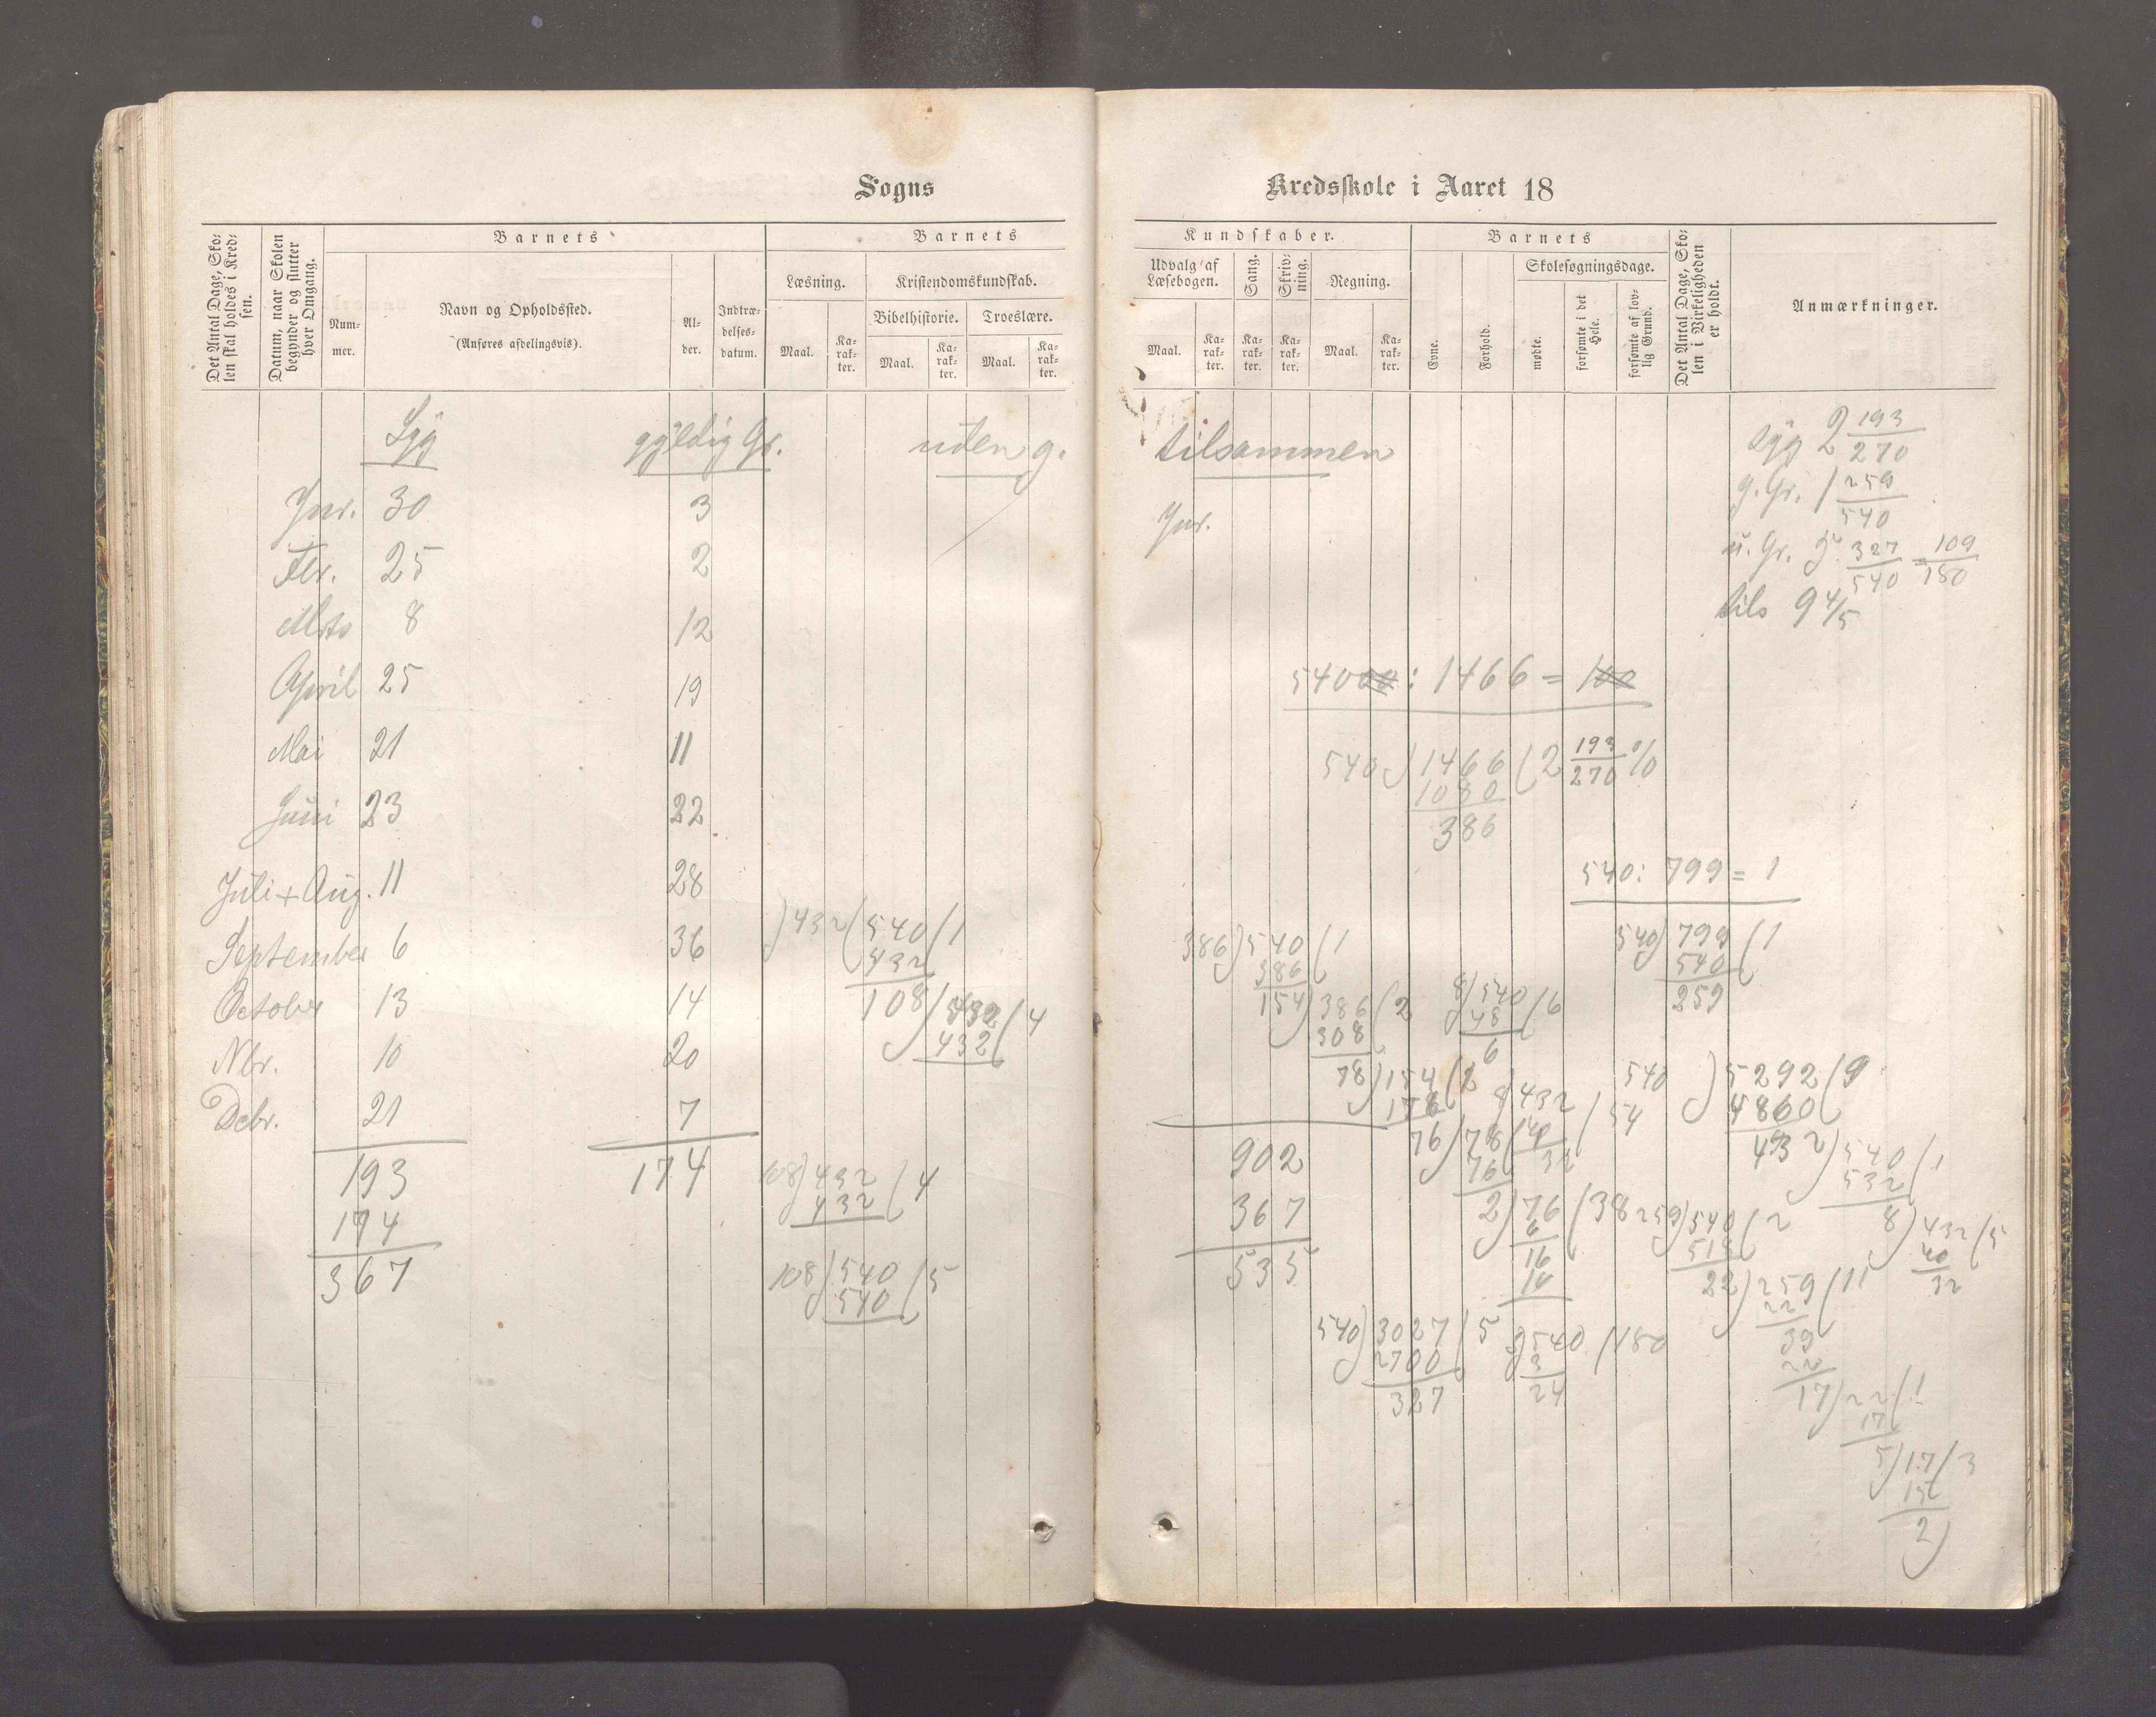 Sogns
Det Antal Dage, Skolen skal holdes i Kredsen.
Datum, naar Skolen begynder og slutter hver Omgang.
Barnets
Nummer.
Navn og Opholdssted.
(Anføres afdelingsvis).
Alder.
Indtrædelsesdatum.
Barnets
Læsning.
Kristendomskundskab.
Bibelhistorie.
Troeslære.
Maal.
Karakter.
Maal.
Karakter.
Maal.
Karakter.
Syg gyldig Gr. uden g.
Jnr. 30 3
Fbr. 25 2
Mrts 8 12
April 25 19
Mai 21 11
Juni 23 22
Juli + Aug. 11 28
September 6 36
October 13 14
Nbr. 10 20
Debr. 21 7
193 174
174
367
)432(540(1
432
108)432(4
432
108)432(4
432
108)540(5
540
Kredsskole i Aaret 18
Kundskaber.
Udvalg af Læsebogen.
Sang.
Skrivning.
Regning.
Maal.
Karakter.
Karakter.
Karakter.
Maal.
Karakter.
Barnets
Evne.
Forhold.
Skolesøgningsdage.
mødte.
forsømte i det Hele.
forsømte af lovlig Grund.
Det Antal Dage, Skolen i Virkeligheden er holdt.
Anmærkninger.
tilsammen
Jnr.
syg 2 193/270
g. Gr. 1 259/540
u. Gr. 5 327/540 = 109/180
tils 9 4/5
54000 : 1466 = 100
540)1466(2 193/270 %
1080
386
540: 799 = 1
540)799(1
540
259
386)540(1
386
154)386(2
308
78)154(2
76)78(1
76
2)76(38
6
16
16
8)540(6
48
6
8)432(54
40
32
540)5292(9
4860
432)540(1
532
8)432(5
40
32
902
367
535
259)540(2
518
22)259(11
22
39
22
17)22(1
17
5)17(3
15
2)
540)3027(5
2700
327
3)540(180
3
24